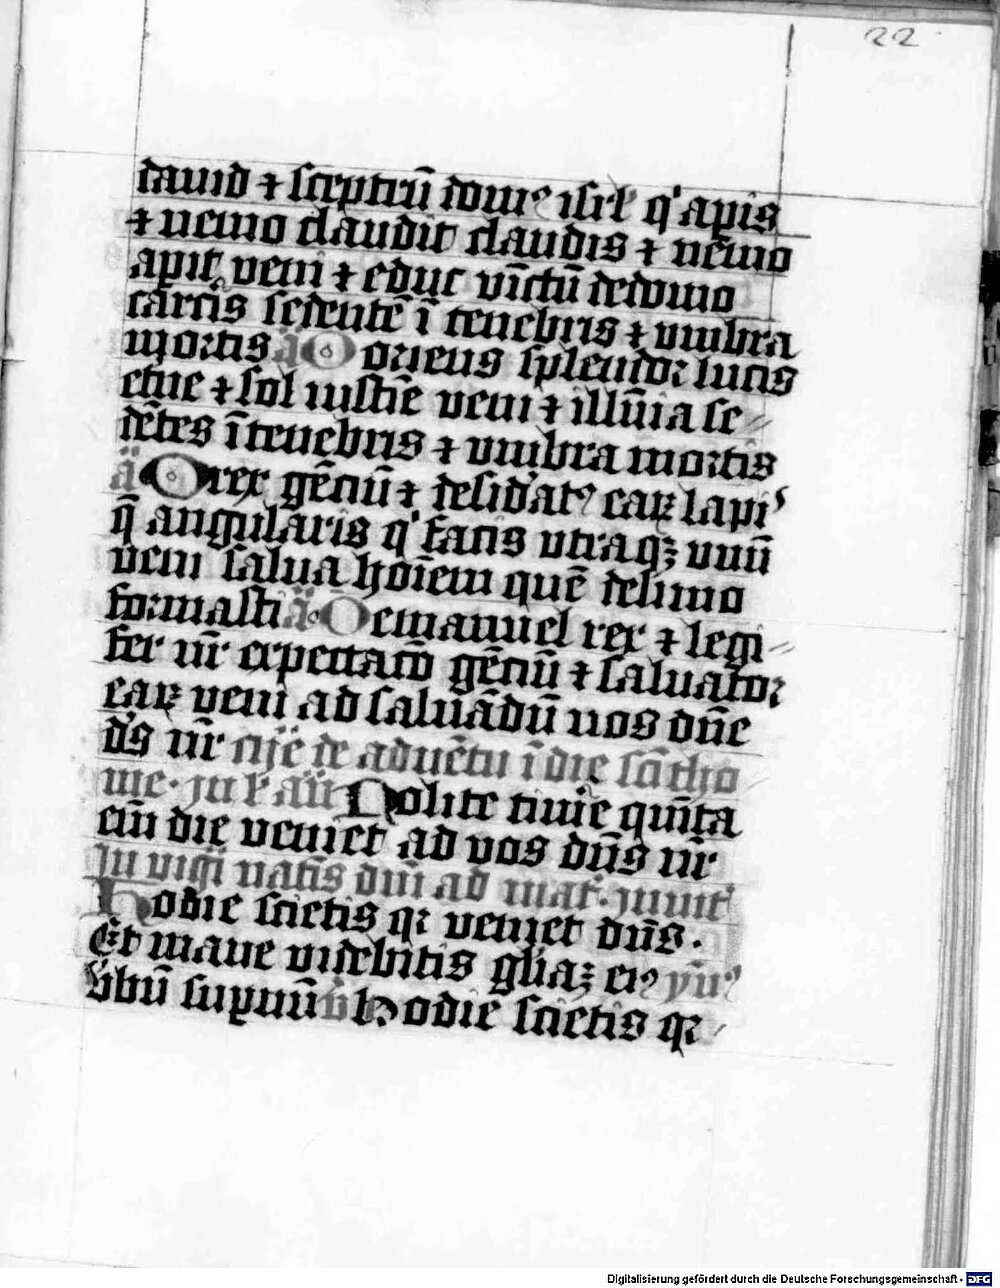 22
dauid ⁊ sceptrū domꝰ isrl̄ qͥ apis
⁊ nemo claudit claudis ⁊ nēmo
apit veni ⁊ educ vīctū dedomo
carcis sedentē ī tenebris ⁊ vmbra
mortis ā O oriens splendor lucis
etne ⁊ sol iustie veni ⁊ illūia se〃
dētes ī tenebris ⁊ vmbra mortis
ā O rex gēciū ⁊ desidatꝰ eaꝝ lapiˢ
q̄ angularis qͥ facis vtraqꝫ vnū
veni salua hoīem quē delimo
formasti ā O emanuel rex ⁊ legi〃
fer nr̄ expectacō gēciū ⁊ saluator
eaꝝ veni ad saluādū nos dn̄e
ds̄ nr̄ de aduētu ī die sc̄i tho
me · Jn l' an̄ Nolite timē quīta
eīn die veniet ad vos dn̄s nr̄
Jn vigi natis dn̄i ad mat · Jnuit
Hodie scietis qꝛ veniet dn̄s ·
Et mane videbitis gliaꝫ eiꝰ ymꝰ
v̄bū supnū v̄ Hodie scietis qꝛ
Digitalisierung gefördert durch die Deutsche Forschungsgemeinschaft - DFG